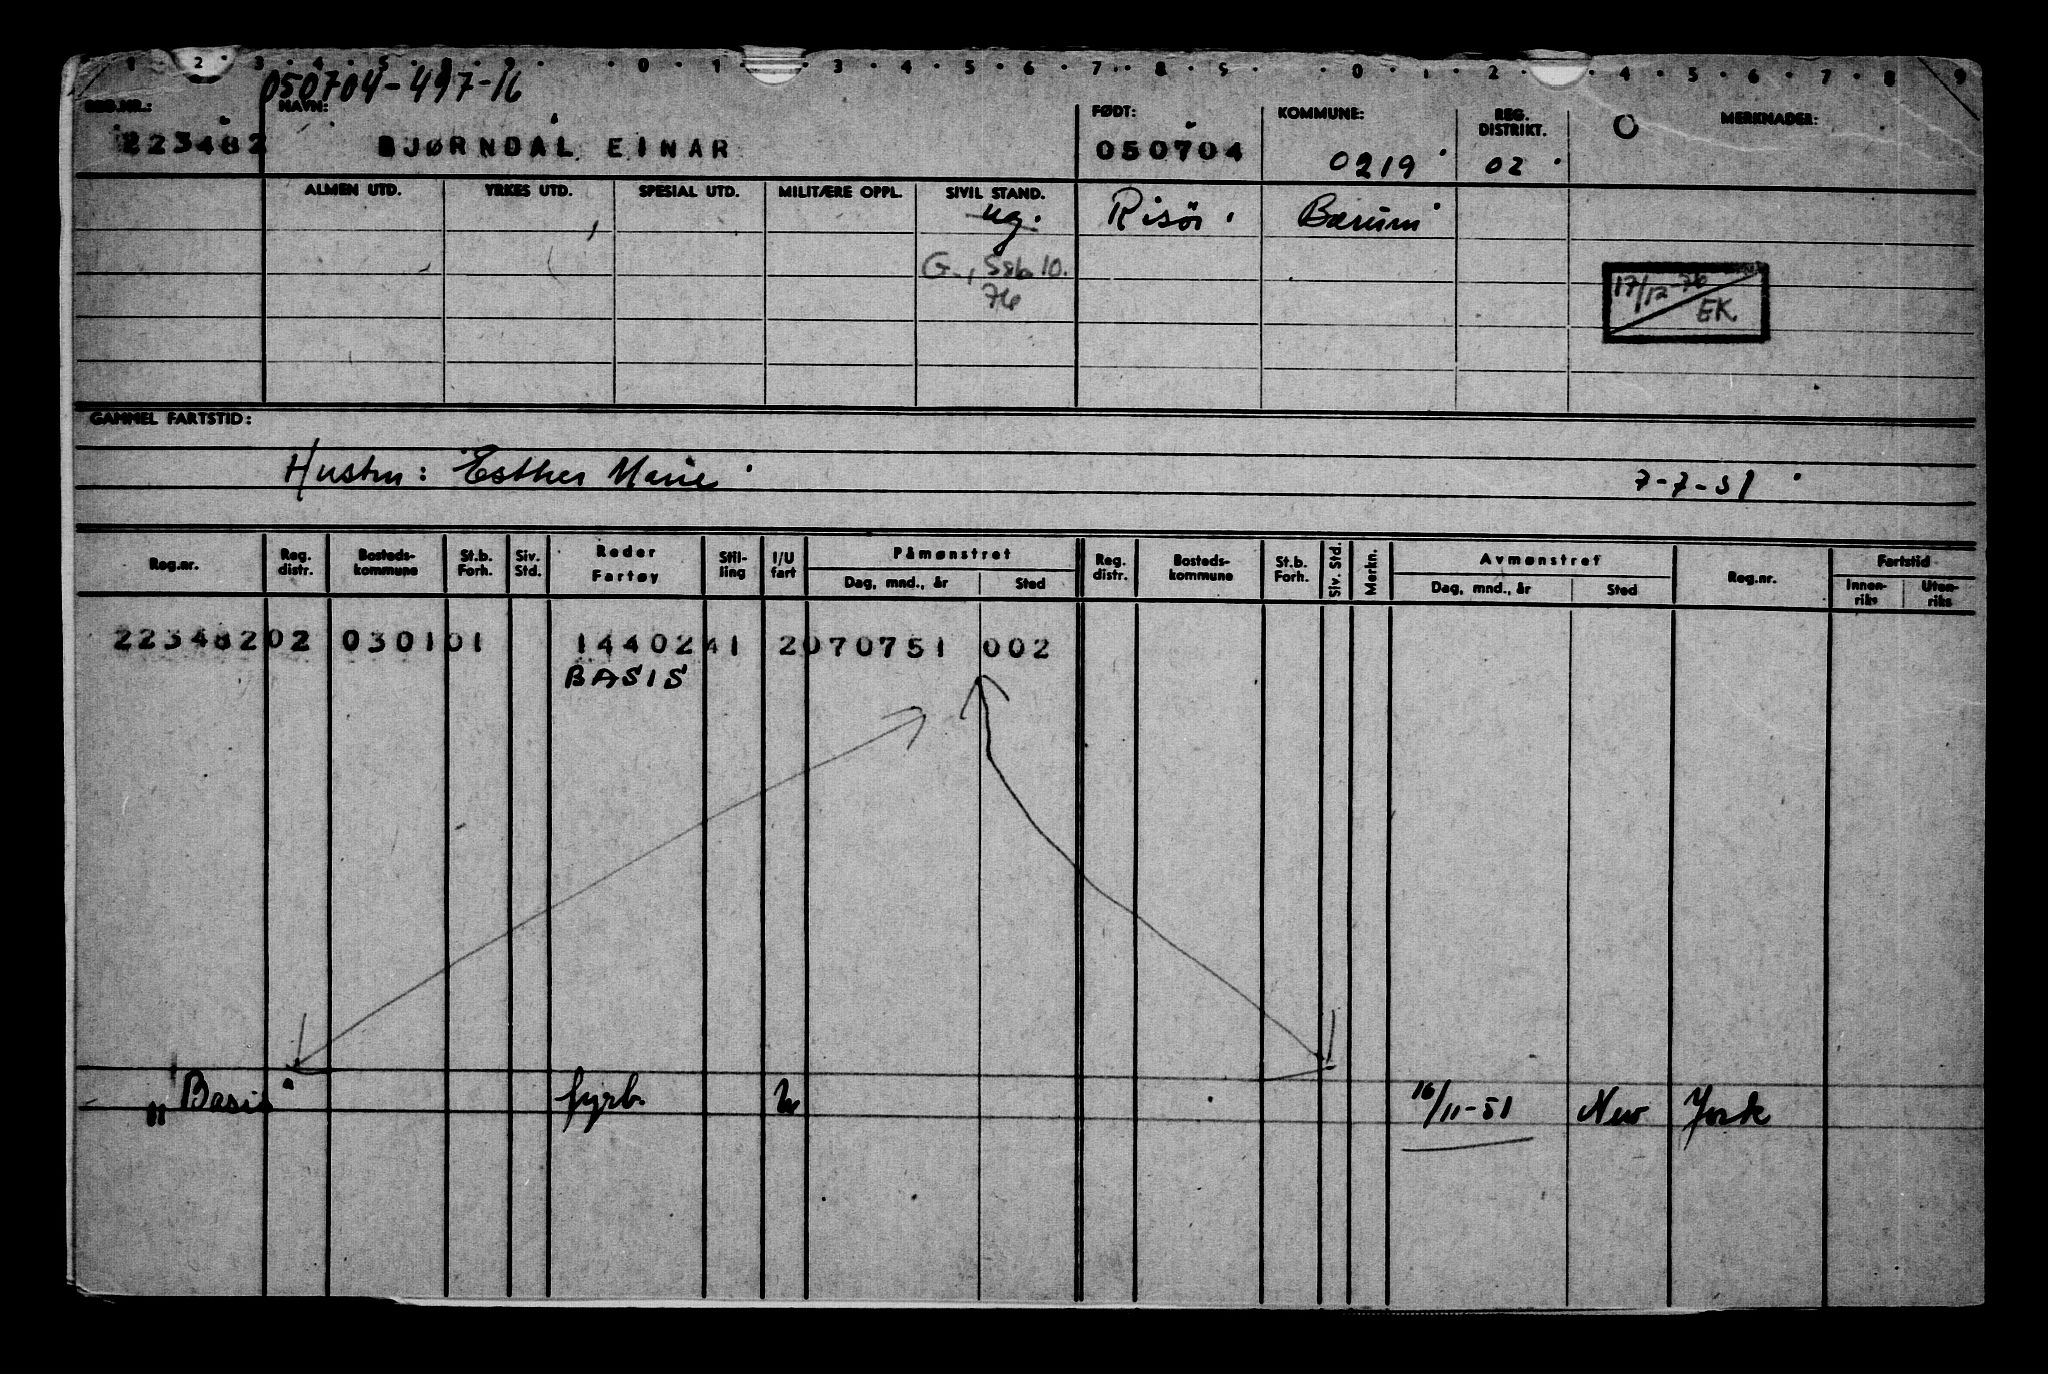 1 2 3 4 5 6 7 0 1 3 4 5 6 7 8 9 0 1 2 4 5 6 7 8 9
050704-497-16
REG.NR.: NAVN: FØDT: KOMMUNE: REG. DISTRIKT. MERKNADER:
223482 BJØRNDAL EINAR 050704 0219 02 O
ALMEN UTD. YRKES UTD. SPESIAL UTD. MILITÆRE OPPL. SIVIL STAND.
ug. Risör Bærum
G., Ssb 10.
76
17/12-76
EK
GAMMEL FARTSTID:
Hustru: Esther Marie 7-7-51
Reg.nr. Reg. distr. Bosteds-kommune St.b. Forh. Siv. Std. Reder Fartøy Stil-ling I/U fart Påmønstret Dag, mnd., år Sted Reg. distr. Bosteds-kommune St.b. Forh. Siv. Std. Merkn. Avmønstret Dag, mnd., år Sted Reg.nr. Fartstid Innen-riks Uten-riks
223482 02 0301 01 14402 41 2 070751 002
BASIS
"Basis" fyrb. U 16/11-51 New York